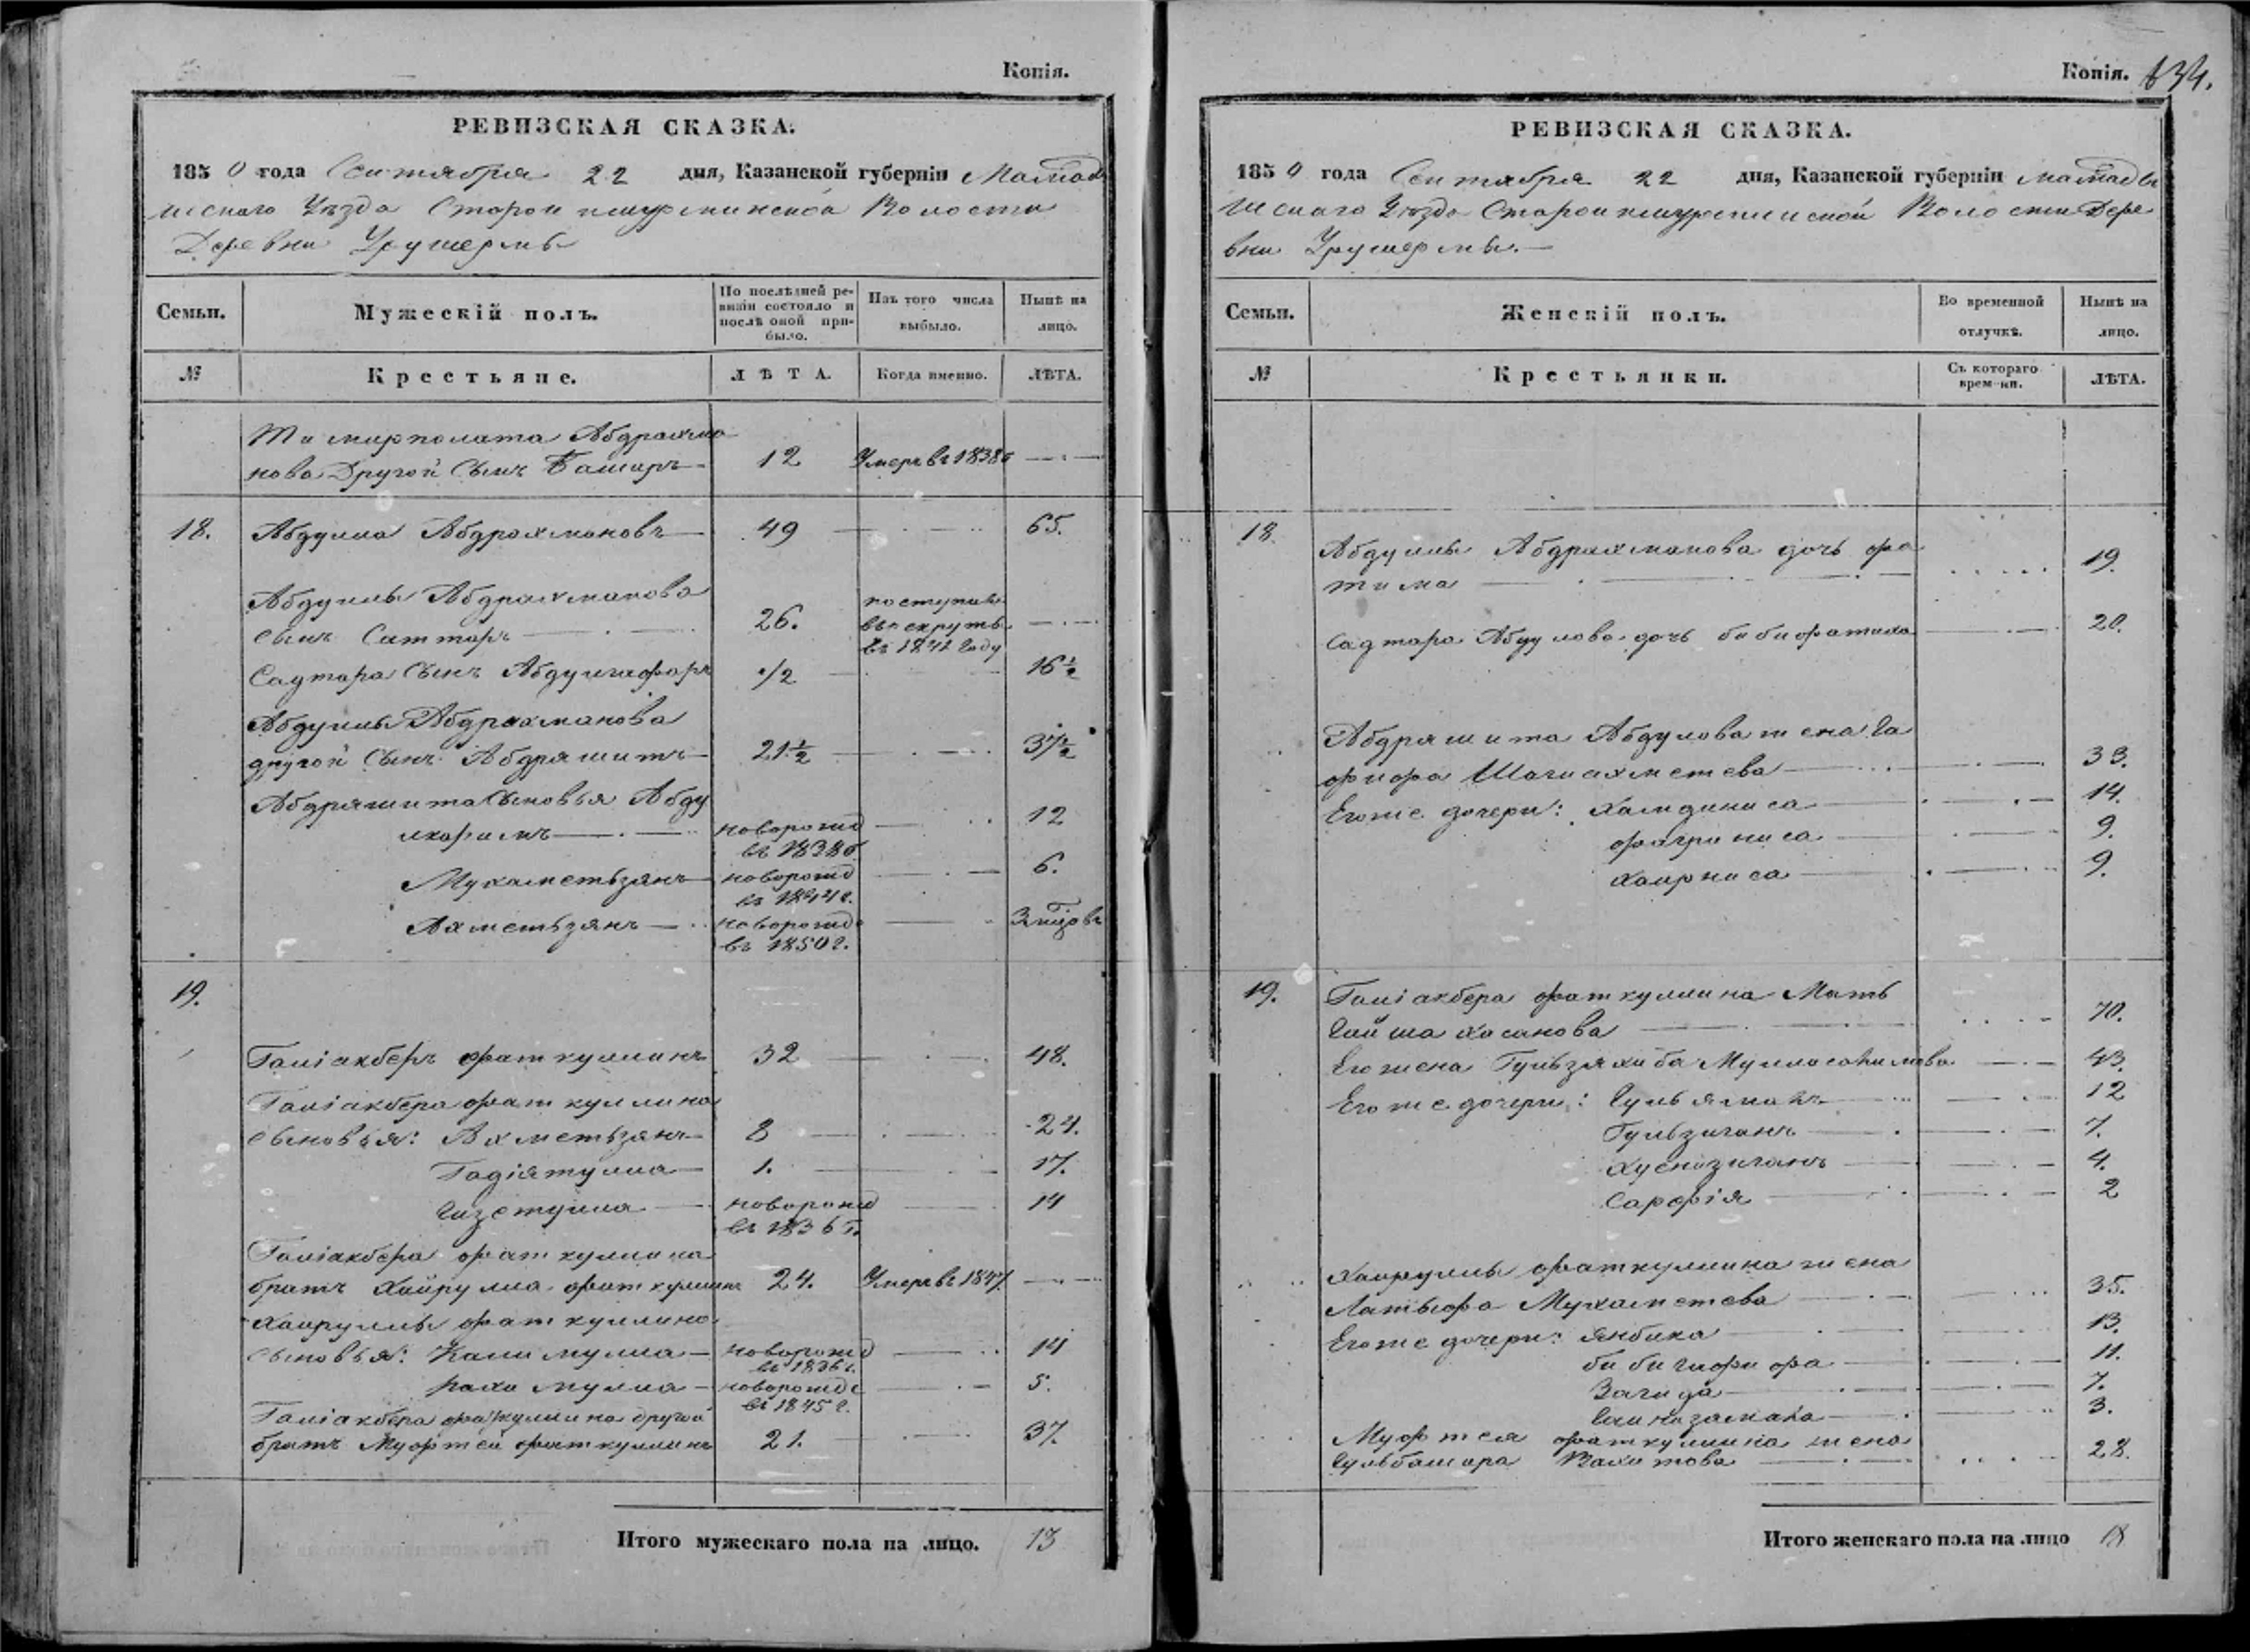 Копія.
РЕВИЗСКАЯ СКАЗКА.
1850 года Сентября 22 дня, Казанской губерніи Мамад
ышскаго Уѣзда Волости
Деревни
Семьи. Мужескій полъ. По послѣдней ревизіи состояло и послѣ оной прибыло. Изъ того числа выбыло. Нынѣ на лицо.
№ Крестьяне. ЛѢТА. Когда именно. ЛѢТА.
Абдрахма
нова Другой Сынъ Башаръ 12 Умеръ въ 1838г
18. Абдулла Абдрахмановъ 49 65.
Абдуллы Абдрахманова
сынъ Саттаръ 26. поступилъ въ рекруты въ 1841 году
Садтара Сынъ Абдулгафаръ 1/2 16 1/2
Абдуллы Абдрахманова
другой Сынъ Абдряшитъ 21 1/2 37 1/2
Абдряшита Сыновья Абду
лкаримъ новорожд въ 1838г. 12
Мухаметьзянъ новорожд въ 1844г. 6.
Ахметьзянъ новорожд въ 1850г.
19.
Галіакберъ фаткуллинъ 32 48.
Галіакбера фаткуллина
сыновья: Ахметьзянъ 8 24.
Гадіятулла 1. 17.
Гизетулла новорожд въ 1836 г. 14
Галіакбера фаткуллина
братъ Хайрулла фаткуллинъ 24. Умеръ въ 1847.
Хайруллы фаткуллина
сыновья: Калимулла новорожд въ 1836г. 14
Рахимулла новорожд въ 1845г. 5.
Галіакбера фаткуллина другой
братъ Муфтей фаткуллинъ 21. 37.
Итого мужескаго пола на лицо. 13
Копія. 134.
РЕВИЗСКАЯ СКАЗКА.
1850 года Сентября 22 дня, Казанской губерніи Мамады
шскаго Уѣзда Волости Дере
вни
Семьи. Женскій полъ. Во временной отлучкѣ. Нынѣ на лицо.
№ Крестьянки. Съ котораго времени. ЛѢТА.
18. Абдуллы Абдрахманова дочь фа
тима 19.
Садтара Абдулова дочь бибифатиха 20.
Абдряшита Абдулова жена Га
фифа Шагиахметева 33.
Его же дочери: Хамдиниса 14.
фахриниса 9.
Хаирниса 9.
19. Галіакбера фаткуллина Мать
Гайша Хасанова 70.
Его жена Гульзяхиба 43.
Его же дочери: Гульяманъ 12
Гульзиганъ 7.
Хуснизиганъ 4.
Сарфія 2
Хайруллы фаткуллина жена
Латыфа Мухаметева 35.
Его же дочери: Янбика 13.
бибигафифа 11.
Загида 7.
3.
Муфтея фаткуллина жена
Гульбашира Вахитова 28.
Итого женскаго пола на лицо 18